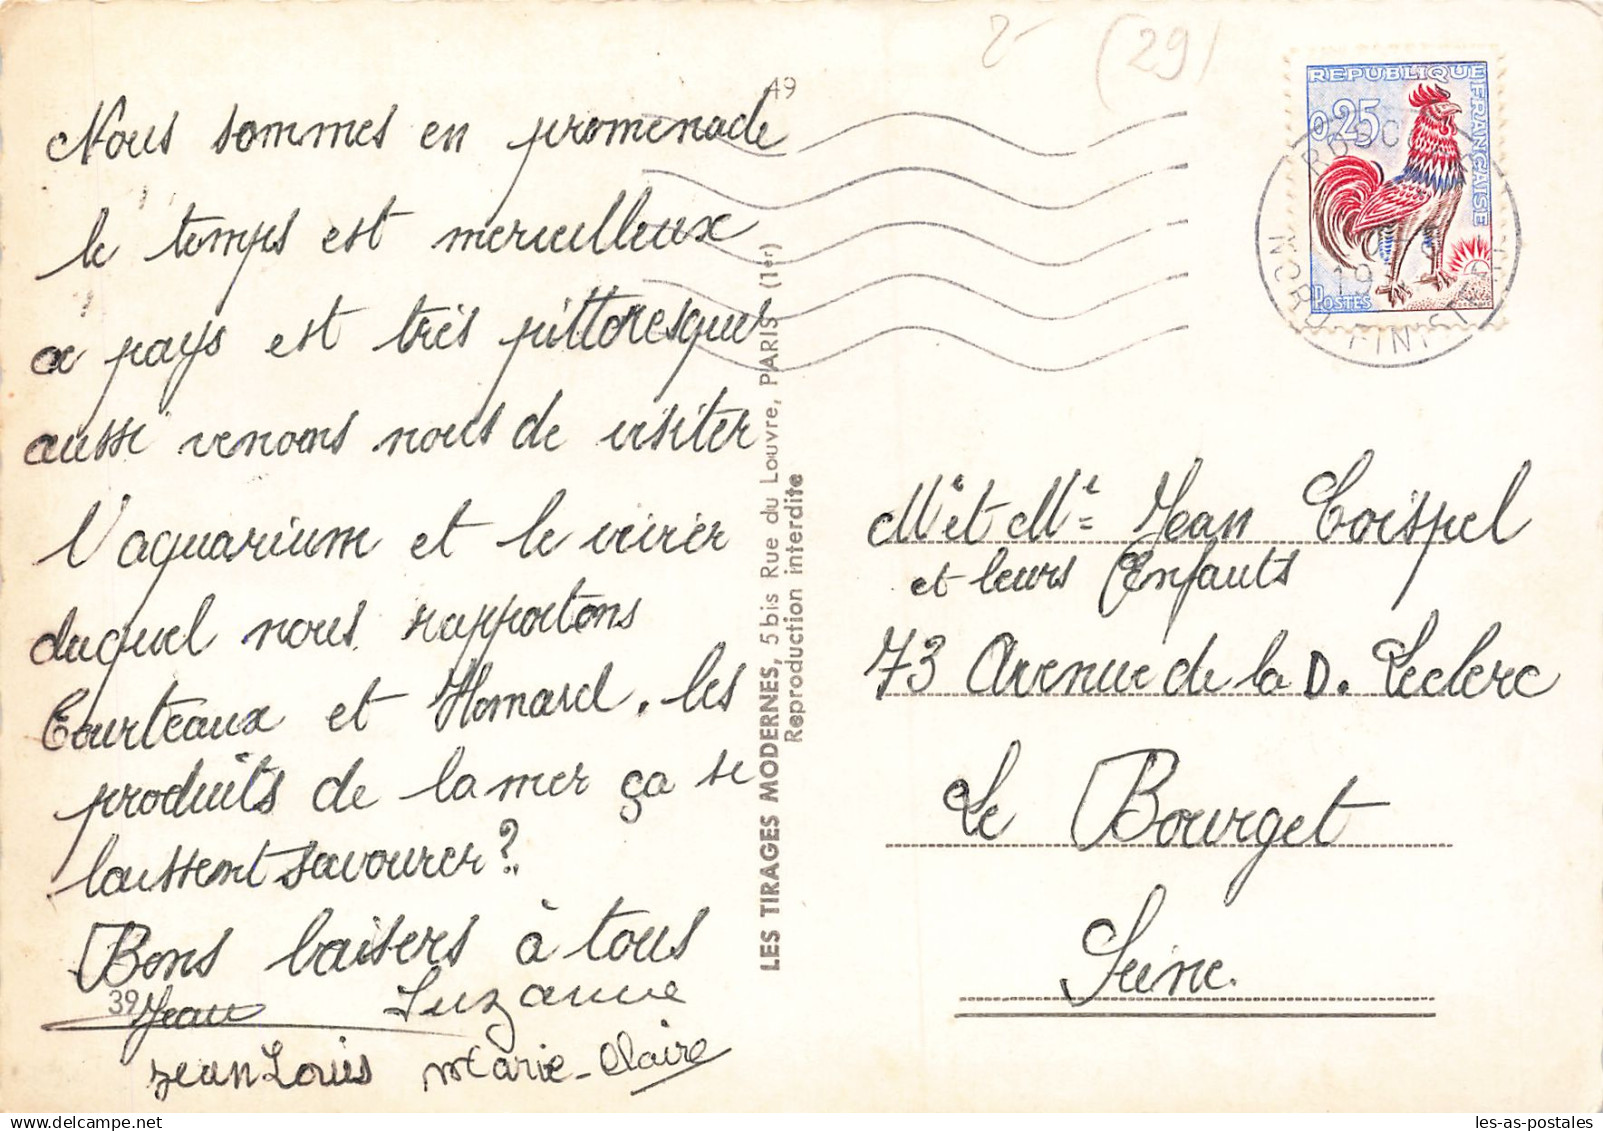 Nous sommes en promenade
le temps est merveilleux
ce pays est très pittoresque
aussi venons nous de visiter
l'aquarium et le vivier
duquel nous rapportons
Tourteaux et Homard. les
produits de la mer ça se
laissent savourer?
Bons baisers à tous
39
Jean Suzanne
Jean Louis Marie-Claire
A9
LES TIRAGES MODERNES, 5 bis Rue du Louvre, PARIS (1er)
Reproduction interdite
(29)
REPUBLIQUE FRANÇAISE
0,25
POSTES
NORD FINISTERE
Mr et Me Jean Toispel
et leurs Enfants
73 Avenue de la D. Leclerc
Le Bourget
Seine.
les-as-postales